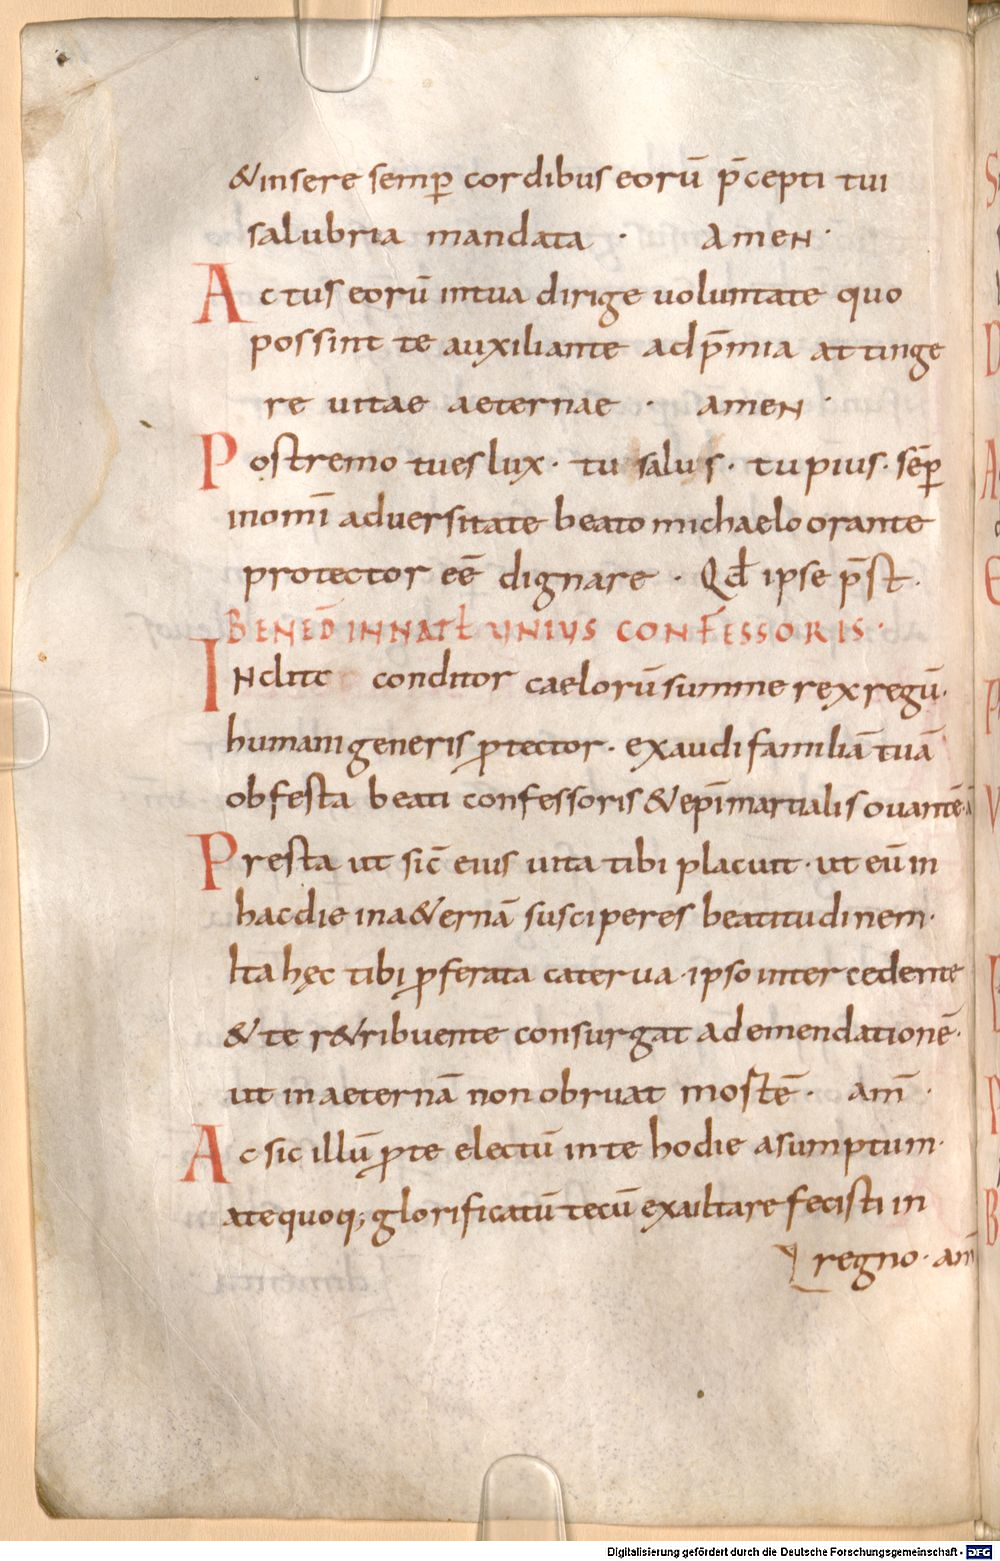 &insere semꝑ cordibus eorū p̄cepti tui
salubria mandata · AmeN ·
Actus eorū intua dirige uoluntate quo
possint te auxiliante adp̄mia attinge
re uitae aeternae · ameN ·
Postremo tues lux · tu salus · tu pius · sēꝑ
inom̄i aduersitate beato michaelo orante
protector eē dignare · Qđ ipse p̄st ·
BENED̄ INNATł UNIUS CONFESSORIS ·
INclite conditor caelorū summe rex regū ·
humani generis ꝓtector · exaudi familiā tuā
ob festa beati confessoris & ep̄i martialis ouantē ·
Presta ut sic̄ eius uita tibi placuit · ut eū in
hac die ina&ernā susciperes beatitudinem ·
Ita hęc tibi ꝓferata caterua · ipso intercedente
& te r&ribuente consurgat ad emendationē ·
ut in aeternā non obruat mostē · am̄ ·
Ac sic illū ꝓte electū inte hodie asumptum ·
atequoq; glorificatū tecū exaultare fecisti in
regno · am̄
Digitalisierung gefördert durch die Deutsche Forschungsgemeinschaft - DFG